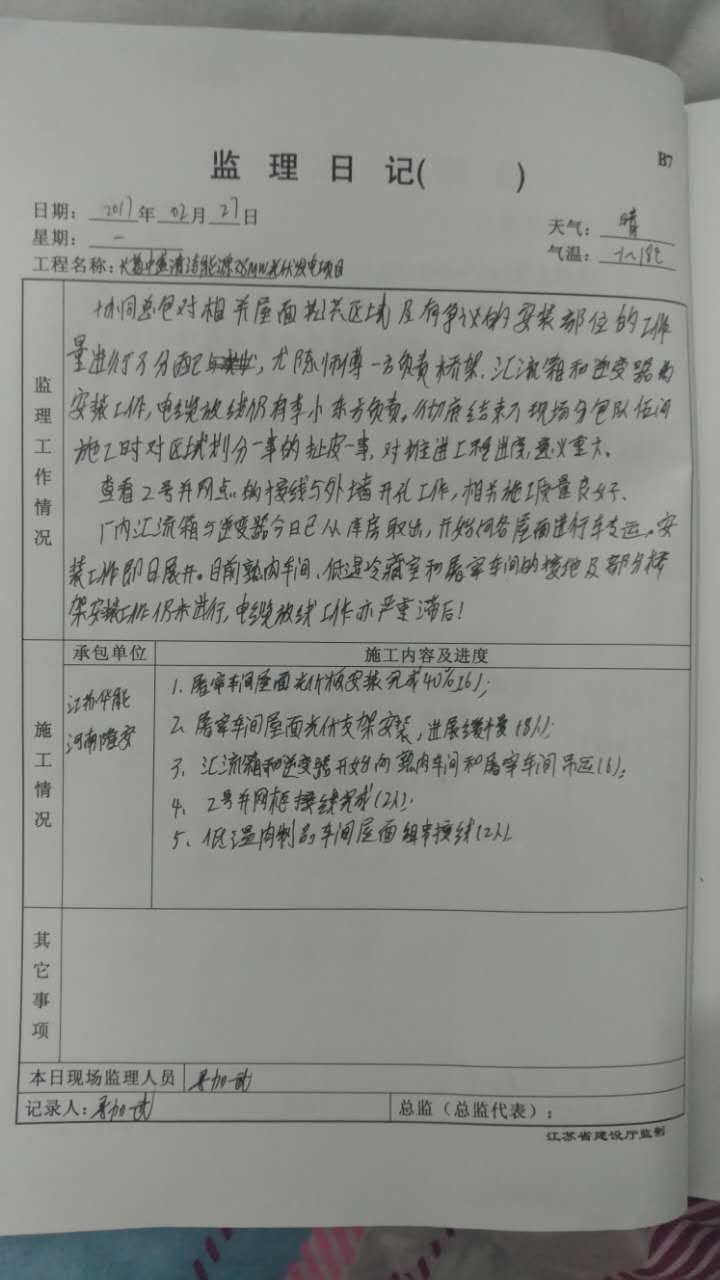 B7
监理日记( )
日期：2017年02月27日
天气：晴
星期：一
气温：1~18℃
工程名称：清洁能源25MW光伏发电项目
监理工作情况
协同总包对相关屋面相关区域及有争议的安装部位的工作
量进行了分配，尤陈师傅一方负责桥架、汇流箱和逆变器的
安装工作，电缆放线仍有李小东方负责。彻底结束了现场分包队伍间
施工时对区域划分一事的扯皮一事，对推进工程进度，意义重大。
查看2号并网点的接线与外墙开孔工作，相关施工质量良好、
厂内汇流箱与逆变器今日已从库房取出，开始向各屋面进行车支运。安
装工作即日展开。目前熟肉车间、低温冷藏室和屠宰车间的接地及部分桥
架安装工作仍未进行，电缆放线工作亦严重滞后！
承包单位
施工内容及进度
施工情况
江苏华能
河南隆安
1、屠宰车间屋面光伏板安装完成40%16)；
2、屠宰车间屋面光伏支架安装，进展缓慢(8人)；
3、汇流箱和逆变器开始向熟肉车间和屠宰车间吊运(6)；
4、2号并网柜接线完成(2人).
5、低温肉制品车间屋面组串接线(2人).
其它事项
本日现场监理人员
记录人：
总监（总监代表）：
江苏省建设厅监制